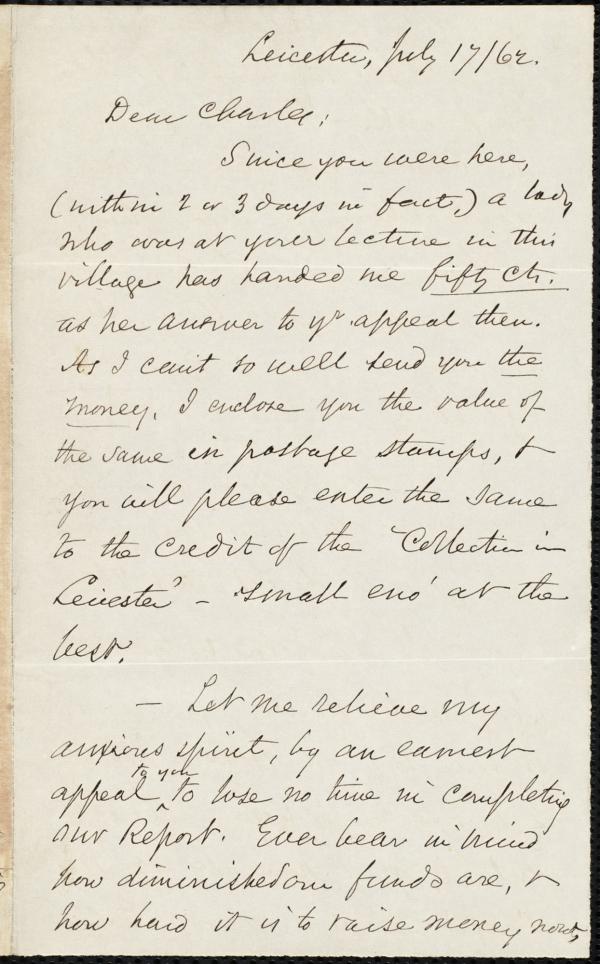 Leicester, July 17/62.
Dear Charles;
Since you were here,
(within 2 or 3 days in fact,) a lady
who was at your lecture in this
village has handed me fifty cts.
as her answer to yr appeal then.
As I can't so well send you the
money, I enclose you the value of
the same in postage stamps, &
you will please enter the same
to the credit of the "Collection in
Leicester" - small eno' at the
best.
- Let me relieve my
anxious spirit, by an earnest
appeal to you to lose no time in completing
our Report. Ever bear in mind
how diminished our funds are, &
how hard it is to raise money now,